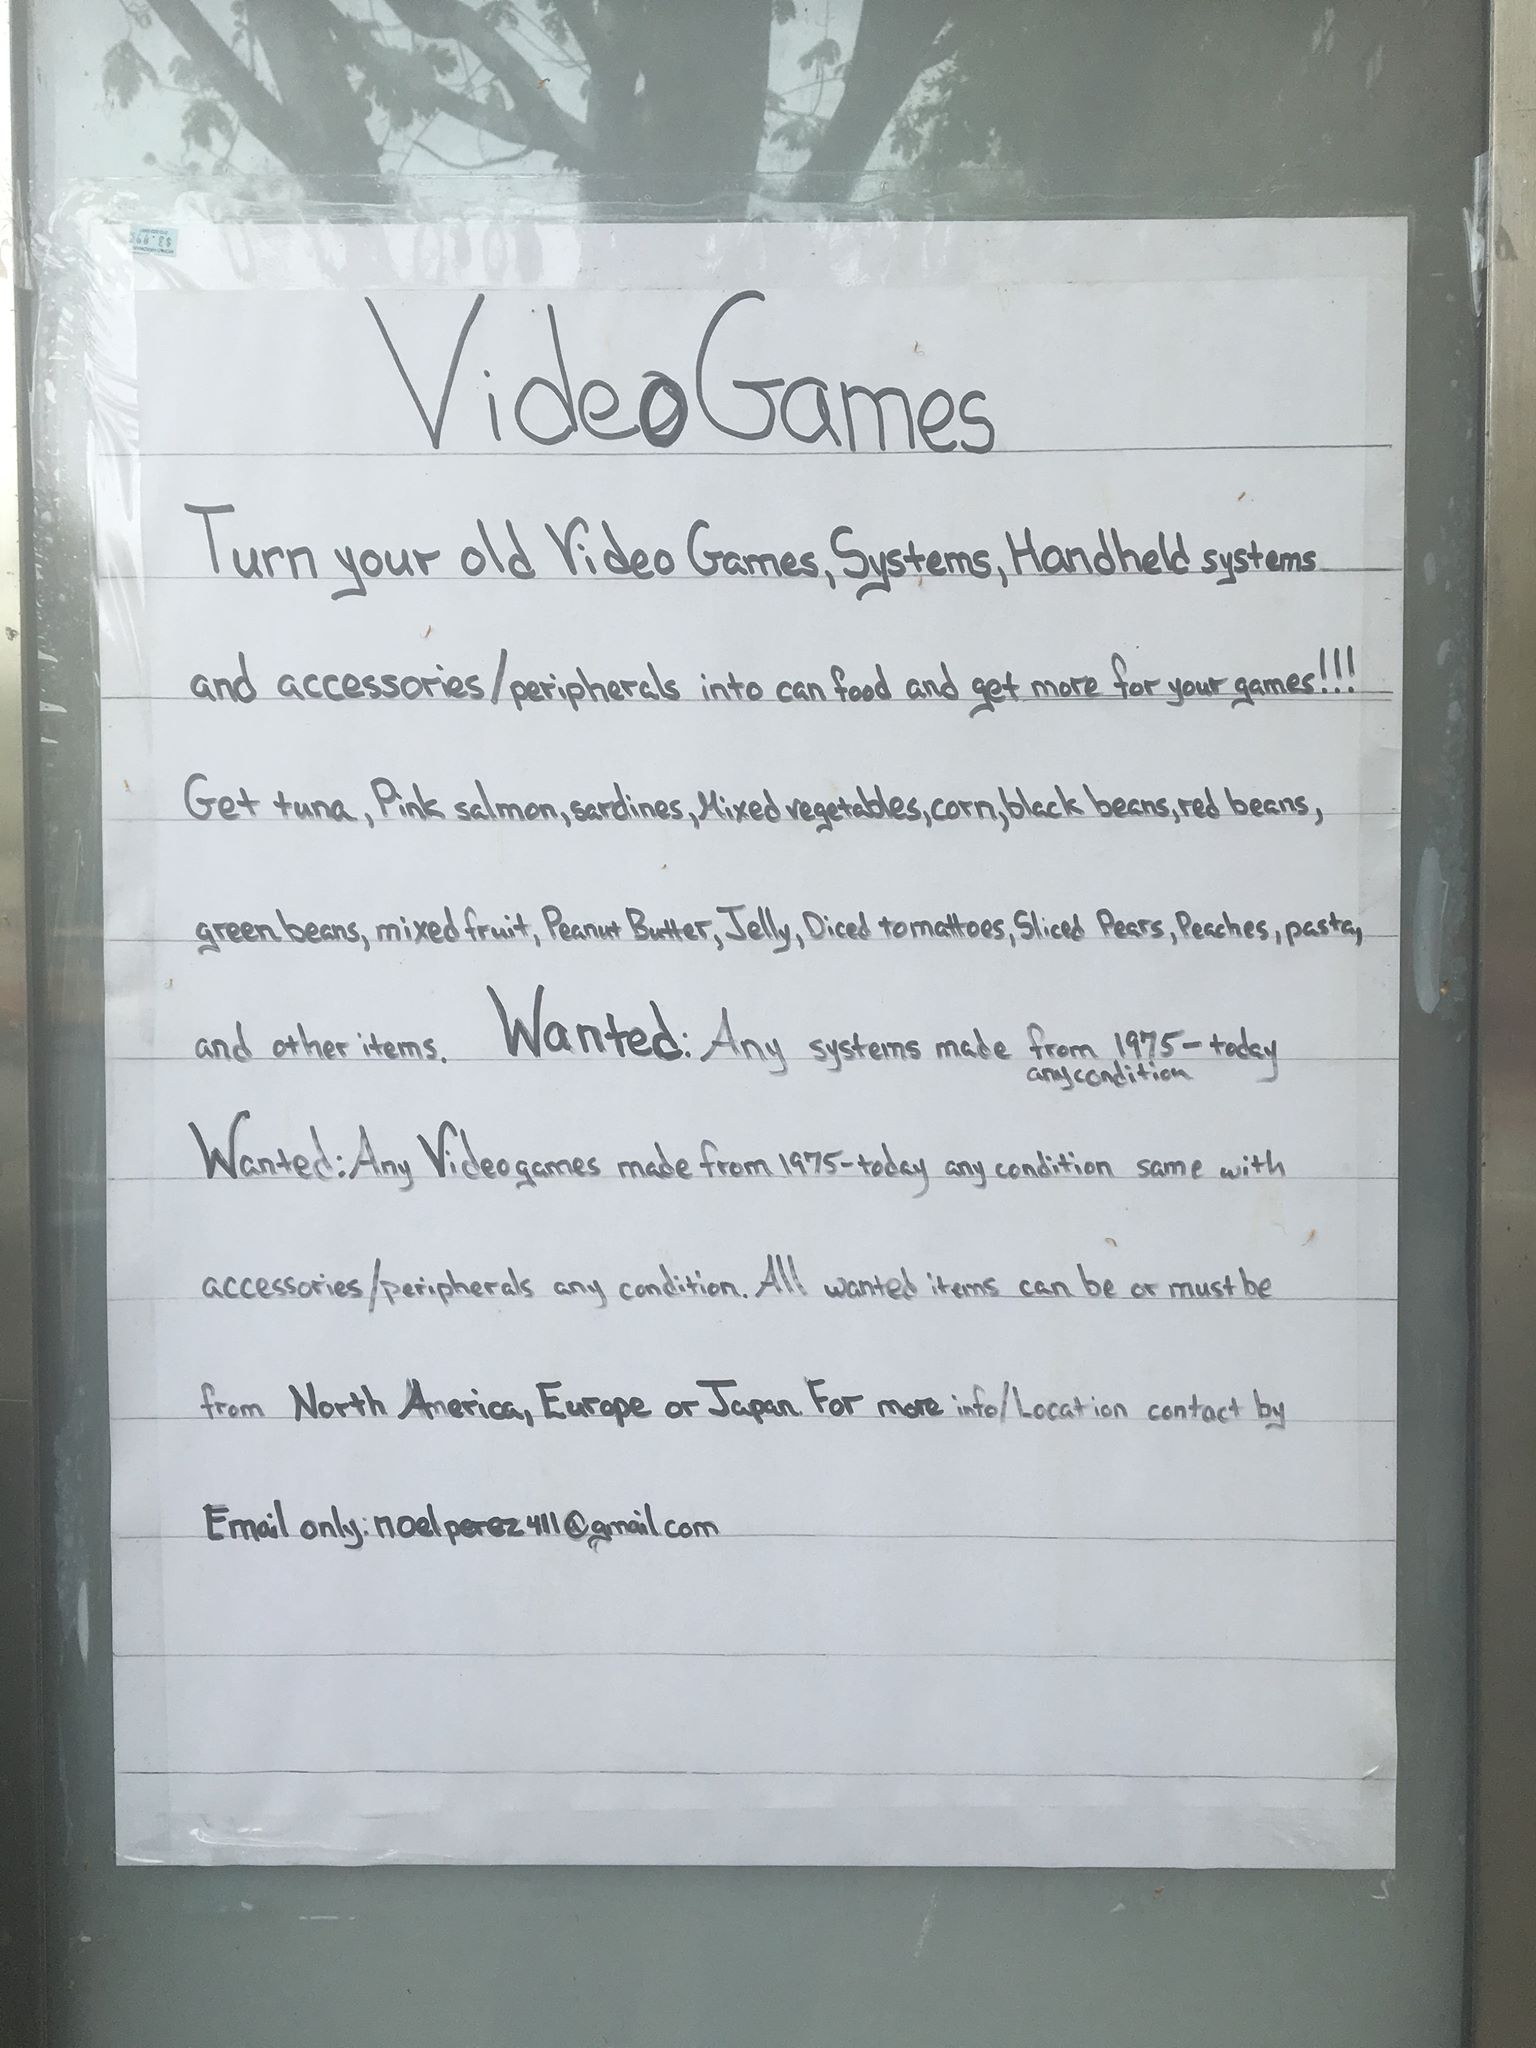 Video Games
Turn your old Video Games, Systems, Handheld systems
and accessories/peripherals into can food and get more for your games!!!
Get tuna, Pink salmon, sardines, Mixed vegetables, corn, black beans, red beans,
green beans, mixed fruit, Peanut Butter, Jelly, Diced tomattoes, Sliced Pears, Peaches, pasta,
and other items. Wanted: Any systems made from 1975-today
any condition
Wanted: Any Videogames made from 1975-today any condition same with
accessories/peripherals any condition. All wanted items can be or must be
from North America, Europe or Japan. For more info/Location contact by
Email only: noelperez411@gmail.com
$3.99